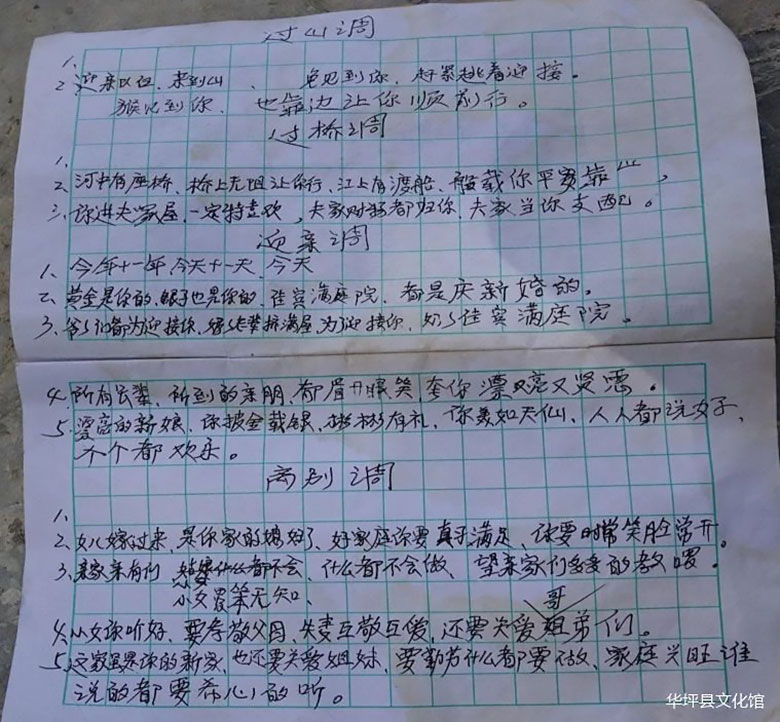 过山调
1.
2 迎亲队伍、来到山、兔见到你、赶紧跳着迎接。
猴见到你、也靠边让你顺前行。
过桥调
1.
2、河中有座桥、桥上无阻让你行、江上有渡船、船载你平安靠
3、你进夫家屋、一定特喜欢、夫家财物都归你、夫家当你支配。
迎亲调
1、今年十一年 今天十一天 今天
2、黄金是你的、银子也是你的、佳宾满庭院、都是庆新婚的。
3、爷爷们都为迎接你、婶婶挤满屋、为了迎接你、佳宾满庭院。
4、所有长辈、所到的亲朋、都眉开眼笑、夸你漂又亮又贤惠。
5、漂亮的新娘、你披金载银、彬彬有礼、你美如天仙、人人都说好、
个个都欢乐。
离别调
1、
2、女儿嫁过来、是你家的媳妇了、好家庭你要真于满足、你要时常笑脸常开。
3、亲家亲友们 什么都不会、什么都不会做、望亲家们多多的教
小女愚笨无知、
哥
4、小女你听好、要孝敬父母、夫妻互敬互爱、还要关爱姐弟们。
5、这家虽是你的新家、也还要关爱姐妹、要勤劳什么都要做、家庭兴旺谁
说的都要希心的听。
华坪县文化馆